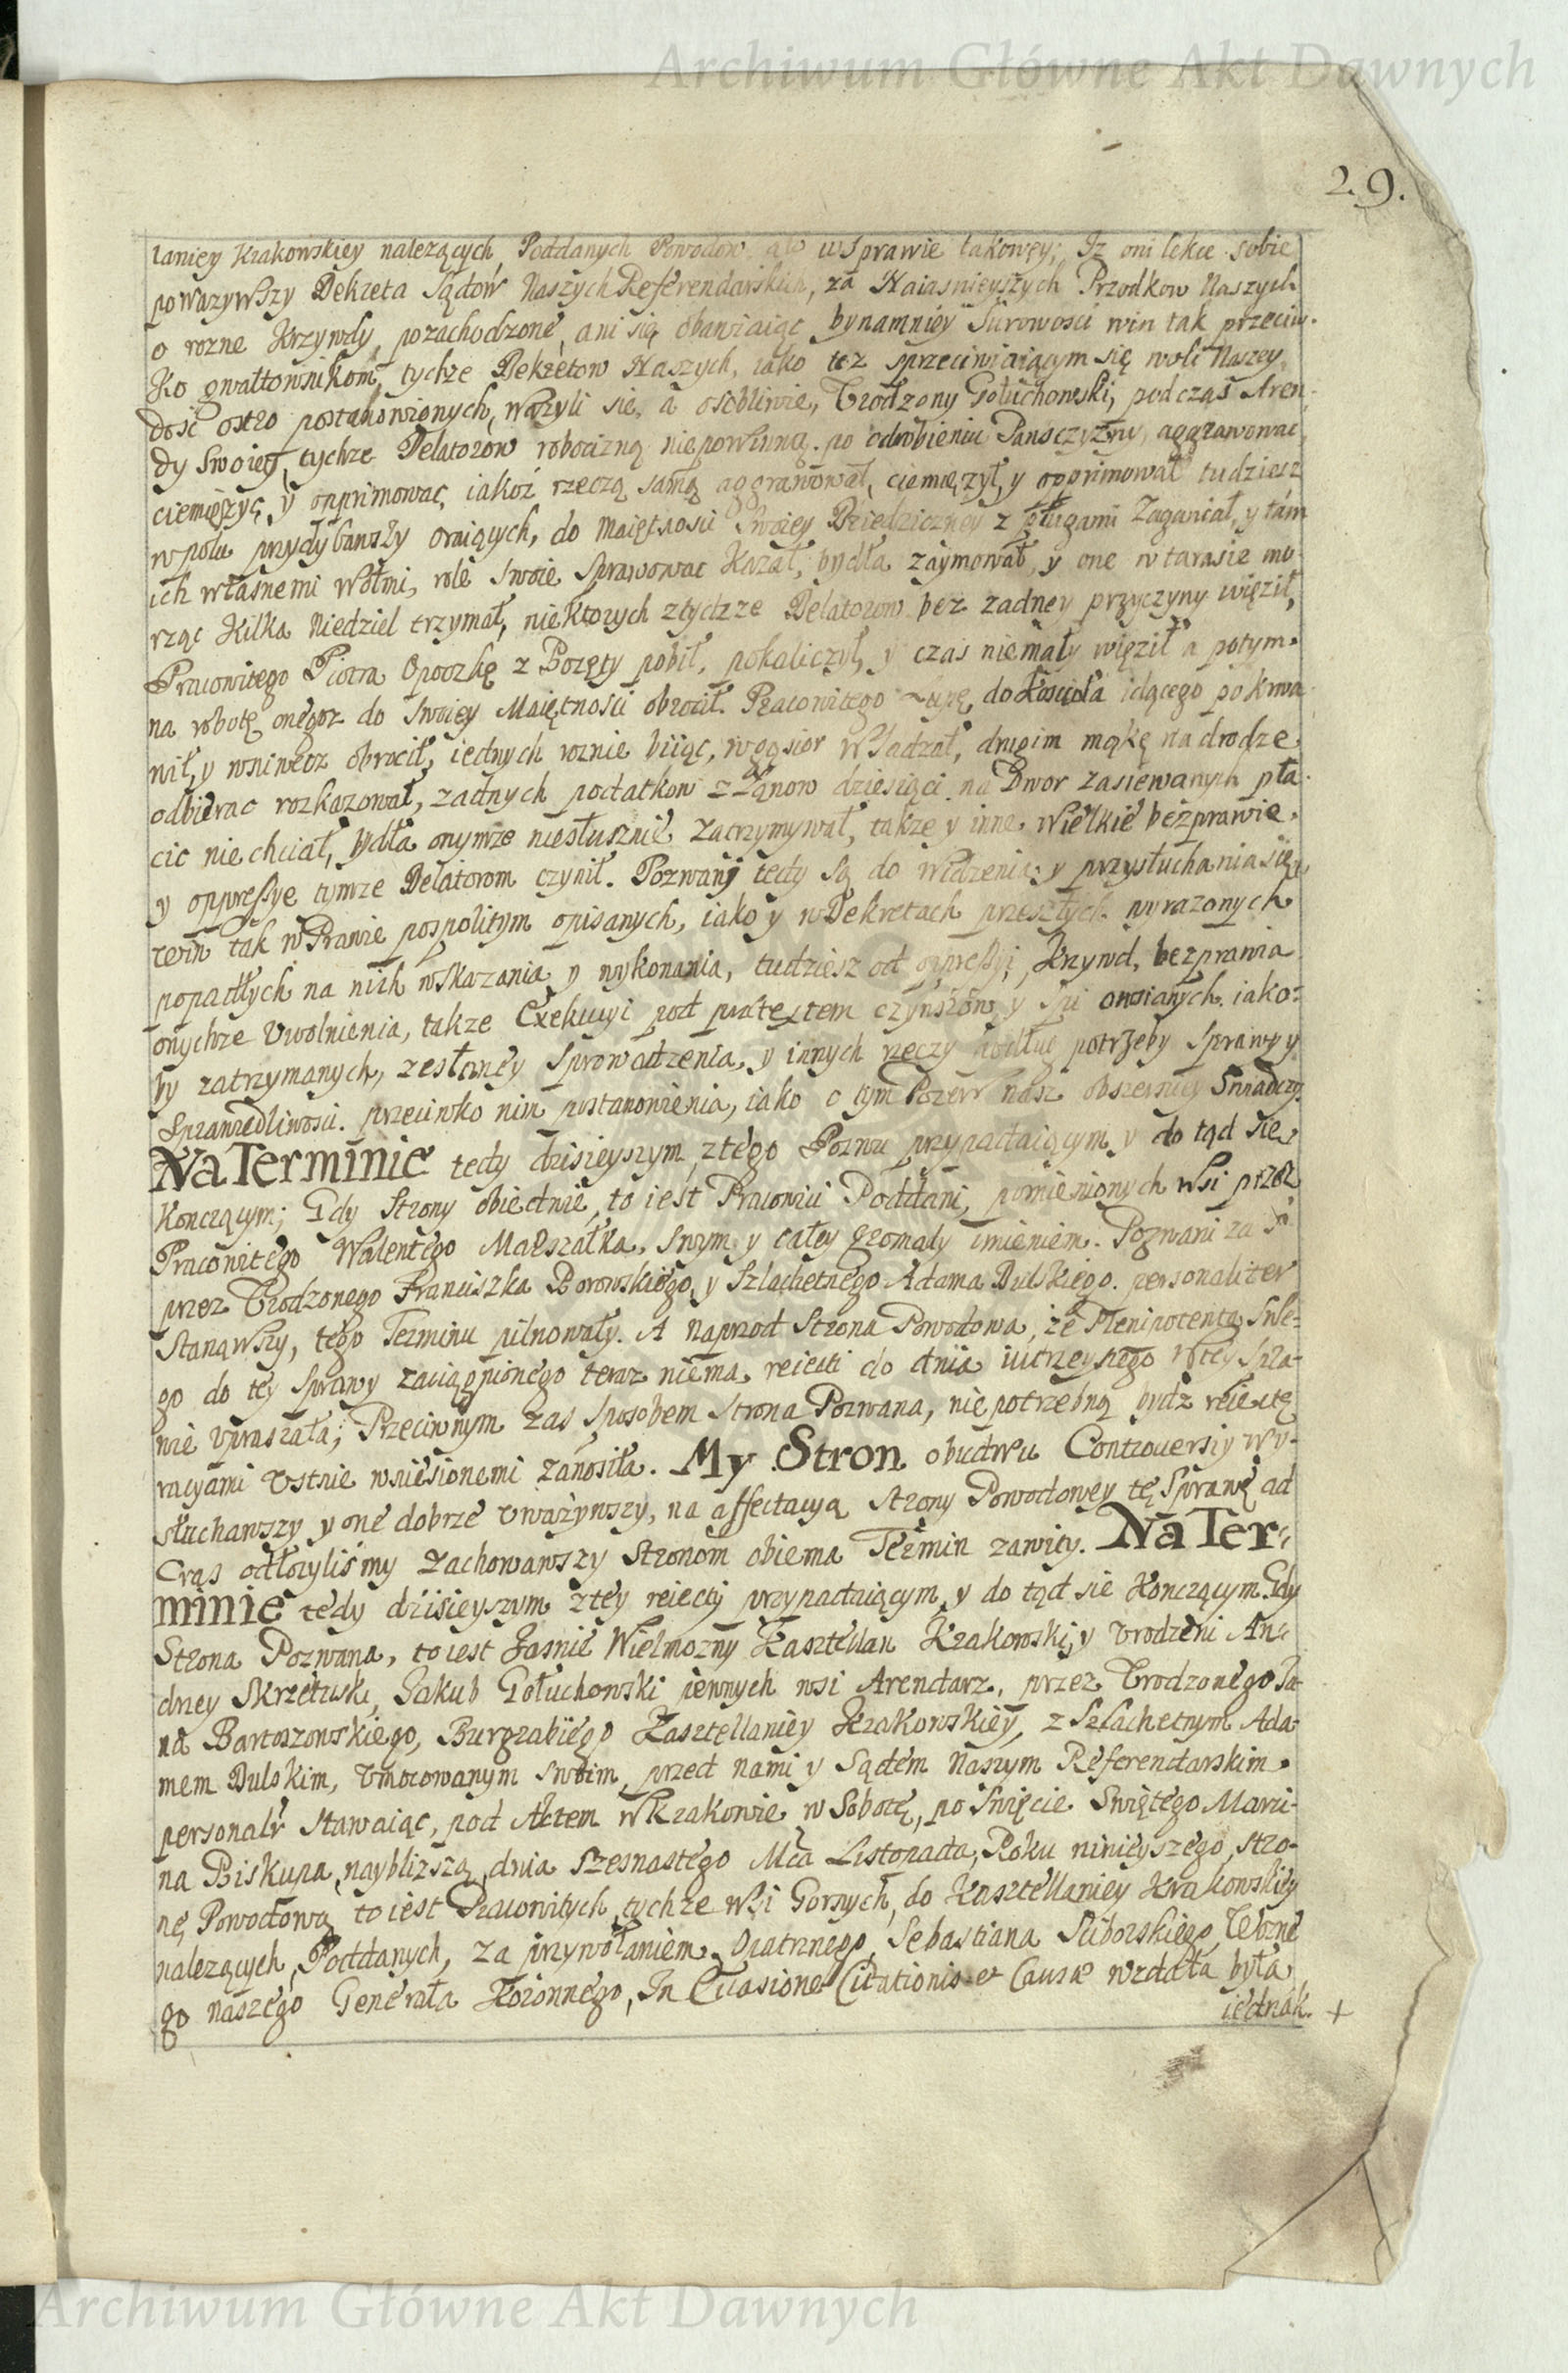 Archiwum Główne Akt Dawnych
29.
laniey Krakowskiey nalezących Poddanych Powodow w Sprawie takowey; Iz oni lekce sobie
powazywszy Dekreta Sądow Naszych Referendarskich, za Naiasnieyszych Przodkow Naszych
o rozne Krzywdy pozachodzone, ani się obawiaiąc bynamniey Surowosci win tak przeciw-
ko gwałtownikom tychze Dekretow Naszych, iako tez sprzeciwiaiącym się woli Naszey
dosic ostro postanowionych, wazyli się, a osobliwie, Urodzony Gołuchowski, podczas Aren-
dy Swoiey, tychze Delatorow robocizną niepowinną po odrobieniu Panszczyzny, aggrawowac
ciemięzyc y opprimowac, iakoz rzeczą samą aggrawował, ciemięzył, y opprimował tudziesz
w polu przydybawszy oraiących, do Maiętnosci Swoiey Dziedziczney z pługami Zaganiał, y tam
ich własnemi Wołmi, role Swoie Sprawowac Kazał, bydła zaymował, y one w tarasie mo-
rząc Kilka Niedziel trzymał, niektorych z tychze Delatorow bez zadney przyczyny więził,
Pracowitego Piotra Opoczkę z Bozęty pobił, pokaliczył, y czas niemały więził a potym
na robotę onegoz do Swoiey Maiętnosci obrocił. Pracowitego do Koscioła idącego pokrwa-
wił, y wniwecz obrocił, iednych roznie biiąc, w gąsior Wsadzał, drugim mąkę na drodze
odbierac rozkazował, zadnych podatkow z Łanow dziesiąci na Dwor zasiewanych pła-
cic niechciał, bydła onymze niesłusznie zatrzymywał, takze y inne Wielkie bezprawie
y oppressye tymze Delatorom czynił. Pozwani tedy są do Widzenia y przysłuchania się
win tak w Prawie pospolitym opisanych, iako y w Dekretach przeszłych wyrazonych
popadłych na nich wskazania y wykonania, tudziesz od oppressyi, Krzywd, bezprawia
onychze Uwolnienia, takze Exekucyi pod praetextem czynszow y Spi owsianych iako-
by zatrzymanych, zesłaney Sprowadzenia, y innych rzeczy wedlug potrzeby Sprawy y
Sprawiedliwosci przeciwko nim postanowienia, iako o tym Pozew nasz obszerniey Swiadczy
Na Terminie tedy dzisieyszym z tego Pozwu przypadaiącym y do tąd się
Konczącym; Gdy Strony obiedwie, to iest Pracowici Poddani, pomienionych Wsi przez
Pracowitego Walentego Marszałka, Swym y całey Gromady imieniem. Pozwani zas
przez Urodzonego Franciszka Borowskiego, y Szlachetnego Adama Dulskiego personaliter
Stanąwszy, tego Terminu pilnowały. A naprzod Strona Powodowa, ze Plenipotenta Swe-
go do tey Sprawy zaciągnionego teraz niema, reiecti do dnia iutrzeyszego w tey Spra-
wie Upraszała; Przeciwnym zas Sposobem Strona Pozwana, niepotrzebną bydz reiectę
racyami Ustnie wniesionemi zanosiła. My Stron obudwu Controuersiy wy-
słuchawszy y one dobrze Uwazywszy, na affectacyą Strony Powodowey tę Sprawę ad
Cras odłozylismy zachowawszy Stronom obiema Termin zawity. Na Ter-
minie tedy dzisieyszym z tey reiecty przypadaiącym, y do tąd się Konczącym. Gdy
Strona Pozwana, to iest Jasnie Wielmozny Kasztellan Krakowski, y Urodzeni An-
drzey Skrzetuski, Jakub Gołuchowski pewnych wsi Arendarz, przez Urodzonego Ja-
na Bartoszowskiego, Burgrabiego Kasztellaniey Krakowskiey, z Szlachetnym Ada-
mem Dulskim, Umocowanym swoim, przed nami y Sądem Naszym Referendarskim
personalr Stawaiąc, pod Aktem W Krakowie w Sobotę, po Swięcie Swiętego Marci-
na Biskupa naybliższą, dnia szesnastego Mca Listopada, Roku ninieyszego, stro-
nę Powodową, to iest Pracowitych, tychze Wsi Gornych, do Kasztellaniey Krakowskiey
nalezących, Poddanych, za przywołaniem Opatrznego, Sebastiana Sciborskiego, Wozne
go naszego Generała Koronnego, In Euasione Citationis et Causae wzdała była,
iednak. +
Archiwum Główne Akt Dawnych